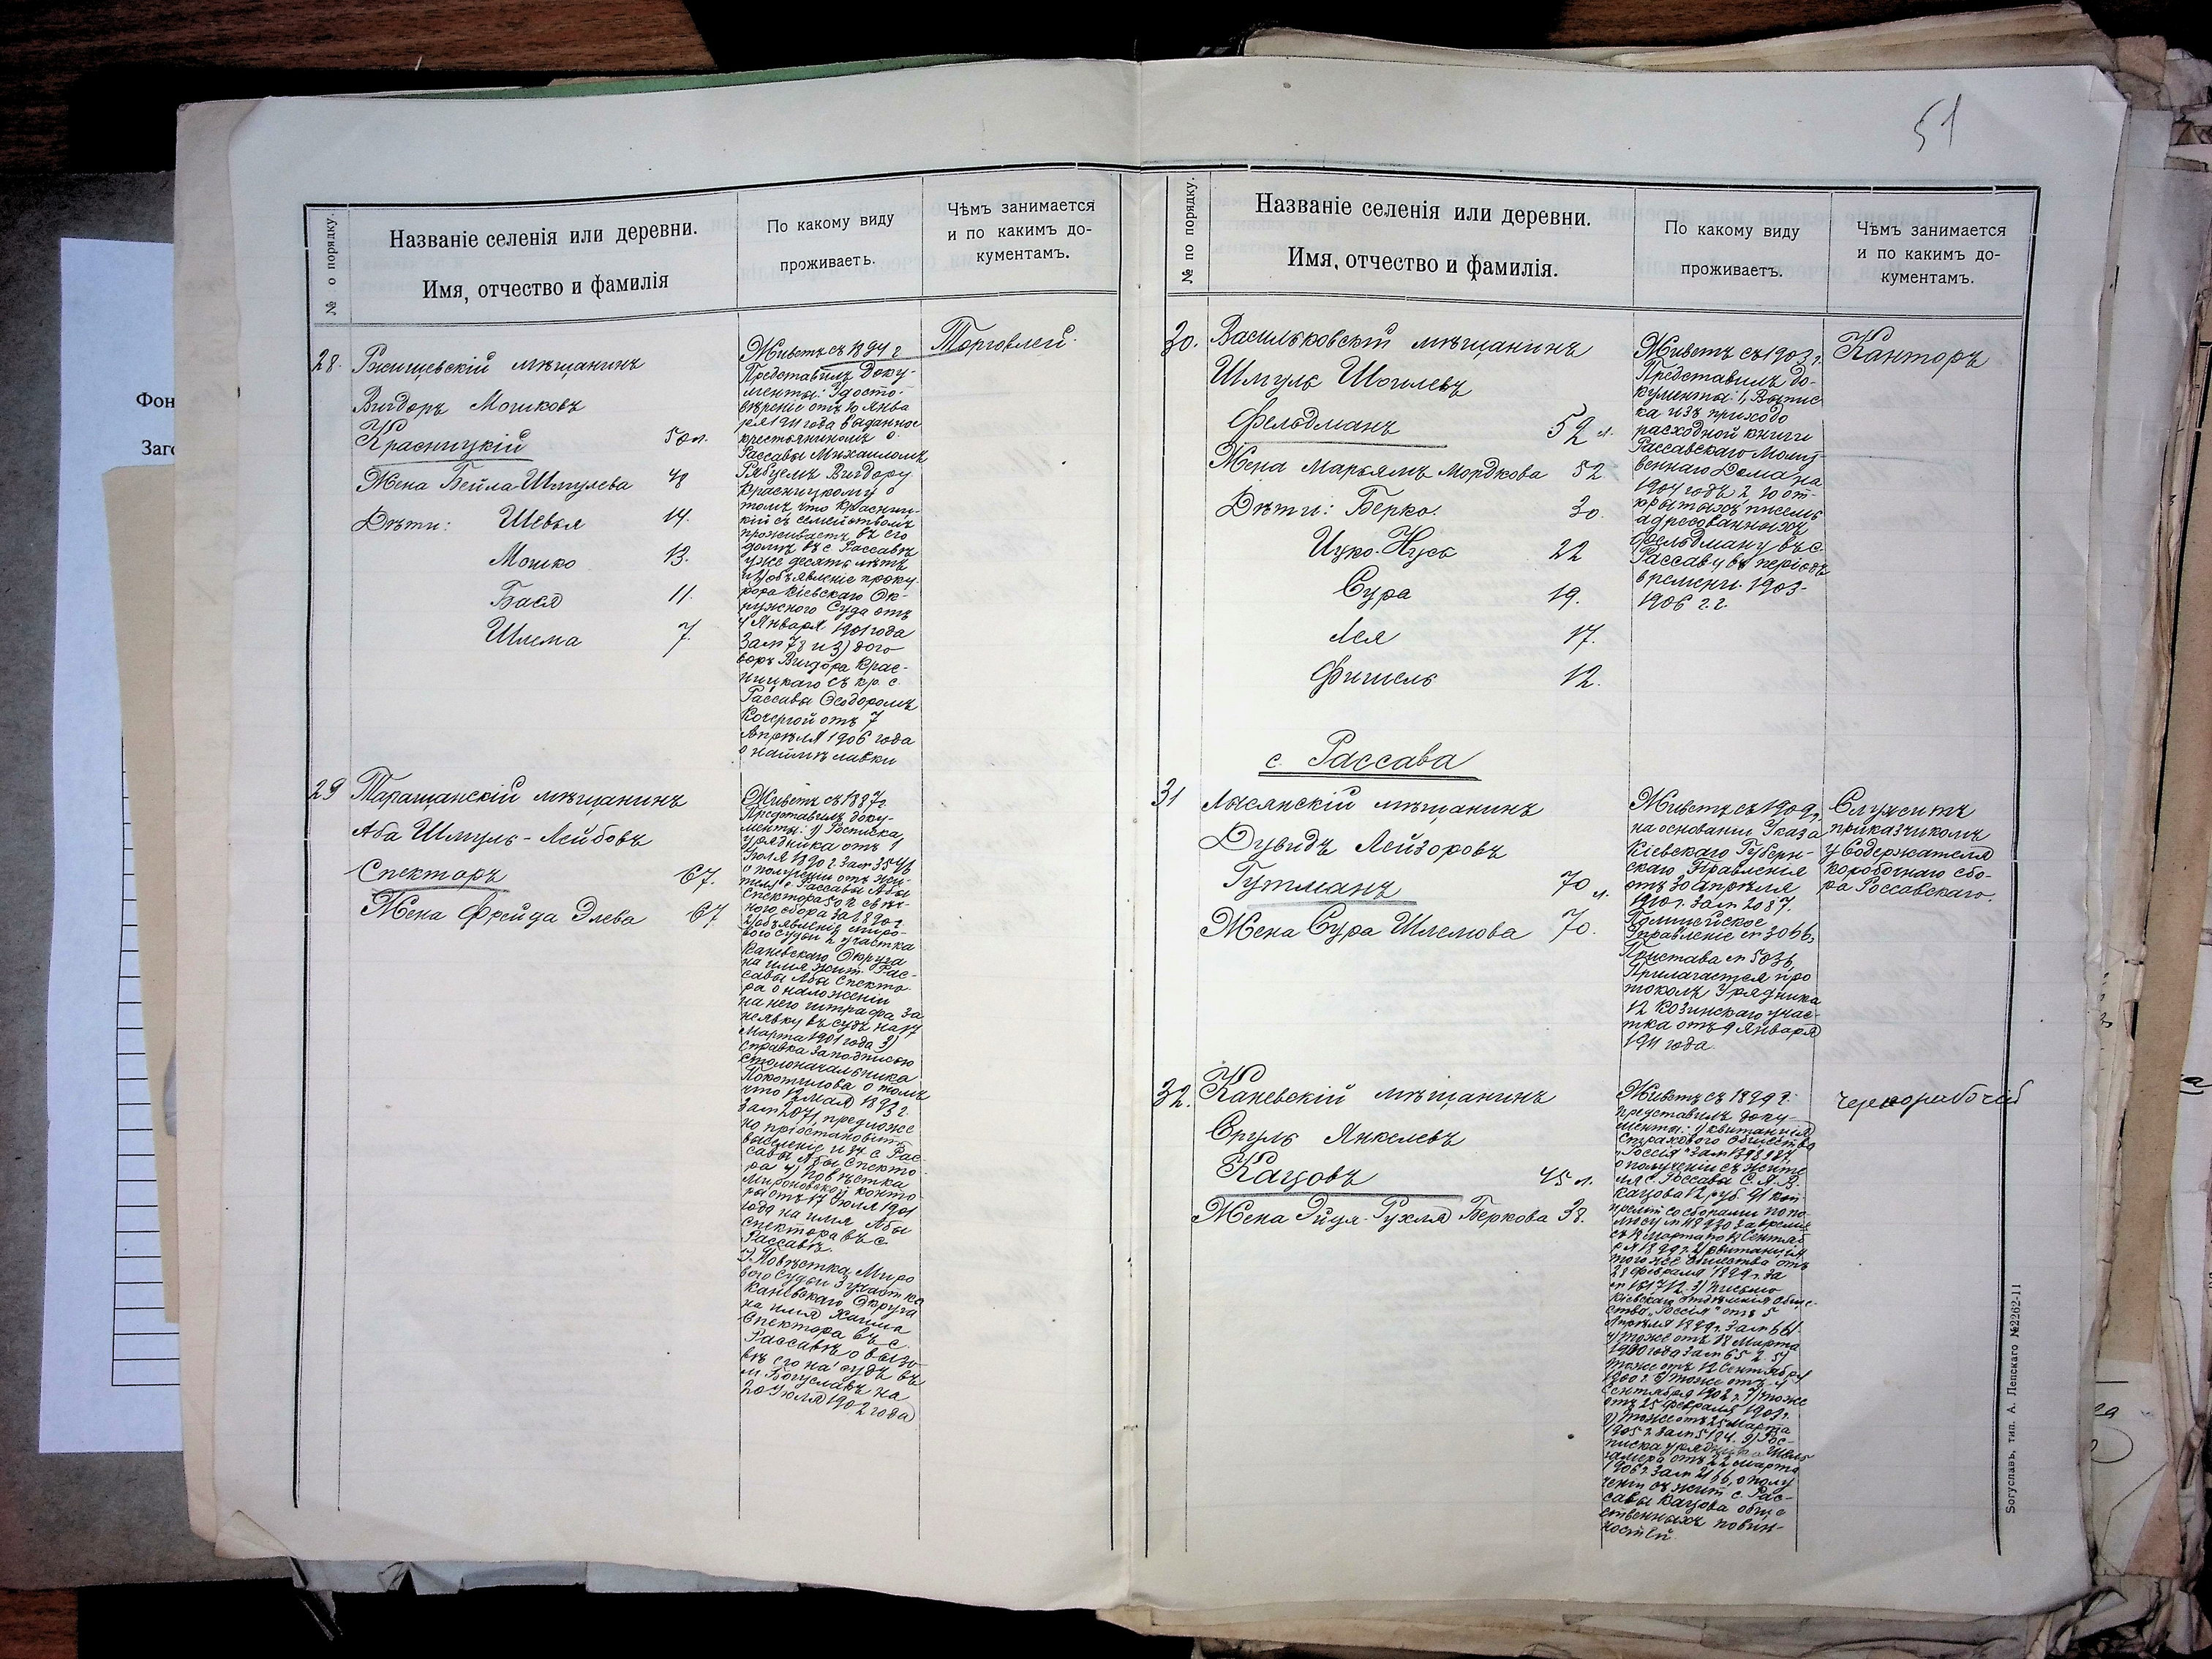 51
№ о порядку.
Названіе селенія или деревни.
Имя, отчество и фамилія
По какому виду
проживаетъ.
Чѣмъ занимается
и по какимъ до-
кументамъ.
28.
Ржищевскій мѣщанинъ
Вигдоръ Мошковъ
Красницкій 50 л.
Жена Бейла Шмулева 48
Дѣти: Шевья 14.
Мошко 13.
Бася 11.
Шлема 7.
Живетъ съ 1894 г
Представилъ доку-
менты: Удосто-
вѣреніе отъ 10 Янва
ря 1911 года выданное
крестьяниномъ с.
Рассавы Михаиломъ
Рябцемъ Вигдору
Красницкому о
томъ, что Красниц-
кій съ семействомъ
проживаетъ въ его
домѣ въ с Рассавѣ
уже десять лѣтъ
и 2) объявленіе проку
рора Кіевскаго Ок-
ружного Суда отъ
4 Января 1901 года
за № 73 и 3) дого
воръ Вигдора Крас-
ницкаго съ кр. с.
Рассавы Ѳеодоромъ
Кочергой отъ 7
Апрѣля 1906 года
о наймѣ лавки
Торговлей.
29
Таращанскій мѣщанинъ
Аба Шмуль-Лейбовъ
Спекторъ 67.
Жена Фрейда Элева 67
Живетъ съ 1887 г.
Представилъ доку-
менты: 1) Росписка
урядника отъ 1
Іюля 1890 г. за № 3546
о полученіи отъ жи-
теля с Рассавы Абы
Спектора
ного сбора за 1890 г.
2) объявленіе миро-
вого судьи 2 участка
Каневскаго Округа
на имя жит. Рас-
савы Абы Спекто-
ра о наложеніи
на него штрафа за
неявку въ судъ на 17
Марта 1901 года 3)
справка за подписью
столоначальника
Покотилова о томъ
что 12 мая 1893 г.
за № 2071 предложе
но пріостановить
выселеніе изъ с Рас-
савы Абы Спекто-
ра 4) повѣстка
Мироновской конто
ры отъ 17 Іюля 1901
года на имя Абы
Спектора въ с.
Рассавѣ.
5) Повѣстка Миро
вого Судьи 3 участка
Каневскаго Округа
на имя Хаима
Спектора въ с.
Рассавѣ о вызо-
вѣ его на судъ въ
м Богуславъ на
20 Іюля 1902 года
№ по порядку.
Названіе селенія или деревни.
Имя, отчество и фамилія.
По какому виду
проживаетъ.
Чѣмъ занимается
и по какимъ до-
кументамъ.
30.
Васильковскій мѣщанинъ
Шмуль Шоилевъ
Фельдманъ 52 л.
Жена Марьямъ Мордкова 52
Дѣти: Берко. 30.
Ицко-Нусь 22
Сура 19.
Лея 17.
Фишель 12.
Живетъ съ 1903 г.
Представилъ до-
кументы: 1, Выпис
ка изъ приходо
расходной книги
Рассавскаго Молит-
веннаго Дома на
1904 годъ 2, 10 от-
крытыхъ писемъ
адресованныхъ
Фельдману въ с.
Рассаву въ періодъ
времени 1903-
1906 г.г.
Канторъ
с. Рассава
31
Лысянскій мѣщанинъ
Дувидъ Лейзоровъ
Гутманъ 70 л.
Жена Сура Шлемова 70.
Живетъ съ 1909 г.
на основаніи Указа
Кіевскаго Губерн-
скаго Правленія
отъ 30 Апрѣля
1910 г. за № 2087.
Полицейское
Управленіе № 3066,
Пристава № 5036,
Прилагается про
токолъ Урядника
12 Козинскаго учас-
тка отъ 9 Января
1911 года.
Служитъ
приказчикомъ
у Содержателя
коробочнаго сбо-
ра Россавскаго.
32.
Каневскій мѣщанинъ
Сруль Янкелевъ
Кацовъ 45 л.
Жена Эйдя-Рухля Беркова 38.
Живетъ съ 1899 г.
представилъ доку-
менты: 1) квитанція
страхового общества
"Россія" за № 139898
о полученіи съ жите
ля с. Рассавы С. Я. В.
Кацова 12 руб. 91 коп
премій со сборами по по-
лису № 118930 за время
съ 12 Марта по 12 Сентяб
ря 1899 г. 2) квитанція
того же Общества отъ
28 Февраля 1899 г. за
№ 151712 3) письмо
Кіевскаго отдѣленія Обще-
ства "Россія" отъ 5
Апрѣля 1899 г. за № 661.
4) тоже отъ 18 Марта
1900 года за № 652 5)
тоже отъ 12 Сентября
1900 г. 6) тоже отъ 4
Сентября 1902 г. 7) тоже
отъ 25 Февраля 1903 г.
8) тоже отъ 25 Марта
1905 г. за № 5184. 9) Рос-
писка урядника
отъ 22 Марта
1906 г. за № 2166, о полу
ченіи съ жит с. Рас-
савы Кацова обще
ственныхъ повин-
ностей.
чернорабочій
Богуславъ, тип. А. Лепскаго №2262-11
Фон
Заго